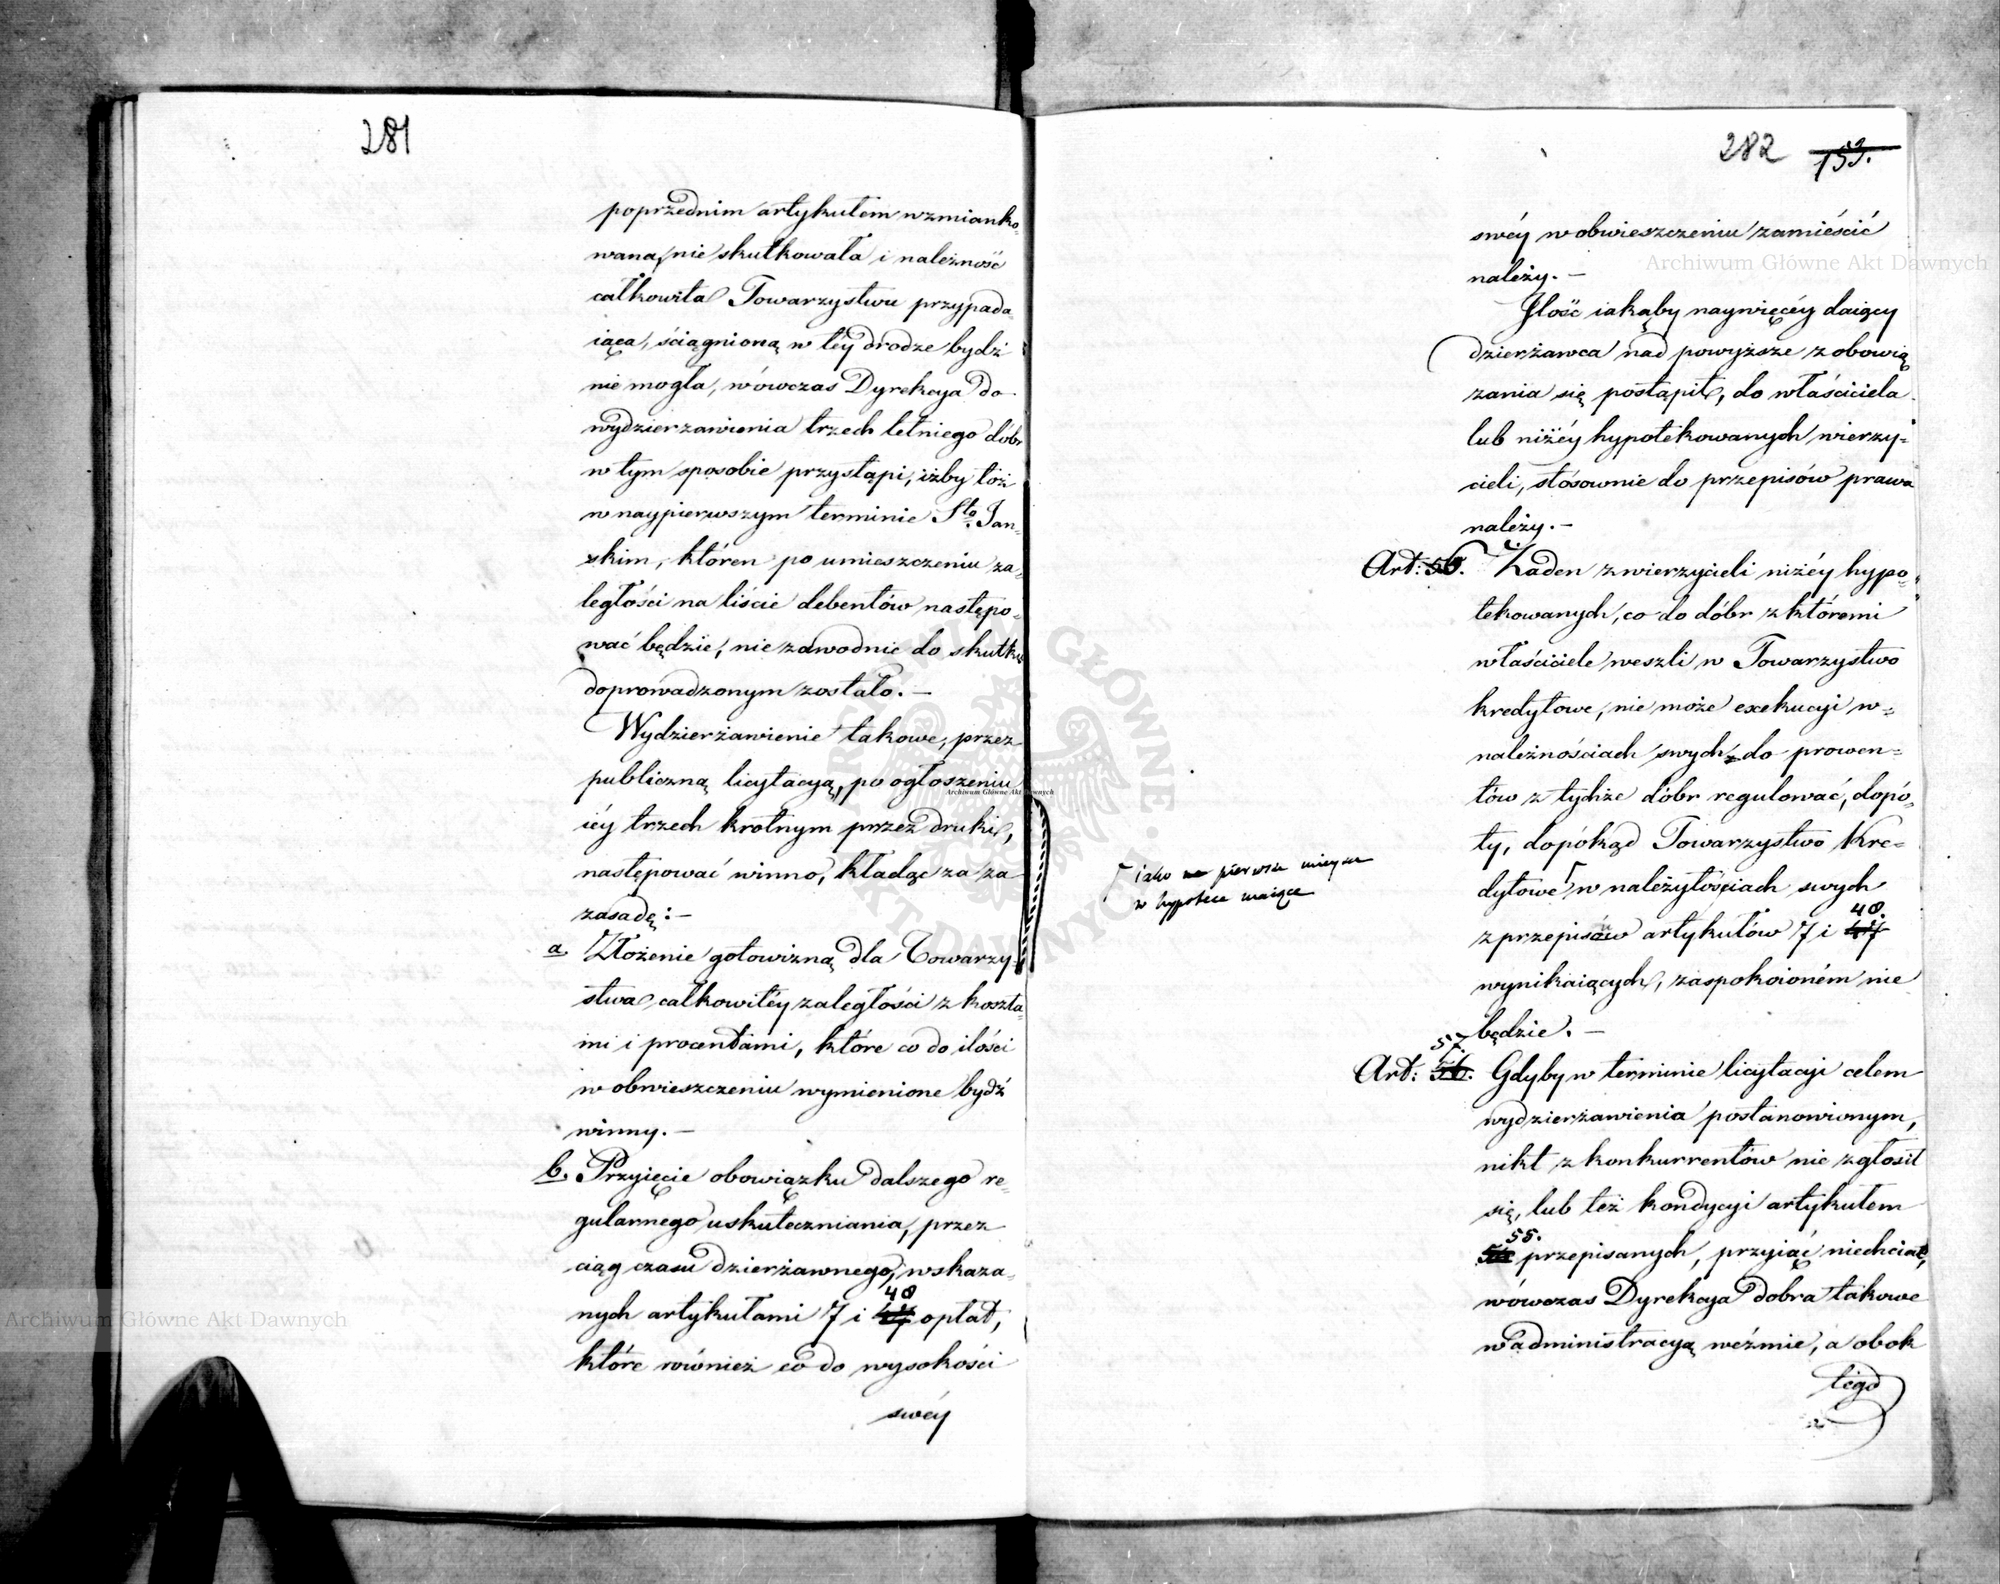 281
poprzednim artykułem wzmianko-
wana, nie skutkowała i należność
całkowita Towarzystwu przypada-
iąca, ściągnioną w téy drodze bydź
nie mogła, wówczas Dyrekcya do
wydzierzawienia trzech letniego dóbr
w tym sposobie przystąpi, iżby toż
w naypierwszym terminie Sto Jan-
skim, któren po umieszczeniu za-
ległości na liście debentów następo-
wać będzie, nie zawodnie do skutku
doprowadzonym zostało. —
Wydzierżawienie takowe, przez
publiczną licytacyą, po ogłoszeniu
iéy trzech krotnym przez druki,
następować winno, kładąc za za
zasadę: —
a Złożenie gotowizną dla Towarzy-
stwa całkowitéy zaległości z koszta-
mi i procentami, które co do ilości
w obwieszczeniu wymienione bydź
winny. —
b. Przyięcie obowiązku dalszego re-
gularnego uskuteczniania, przez
ciąg czasu dzierżawnego, wskaza-
48
nych artykułami 7 i 47 opłat,
które również co do wysokości
swéy
282 153.
swéy w obwieszczeniu zamieścić
należy. —
Ilość iakąby naywięcéy daiący
dzierżawca nad powyższe zobowią
zania się postąpił, do właściciela
lub niżéy hypotekowanych wierzy-
cieli, stósownie do przepisów prawa
należy. —
Art: 56. Żaden z wierzycieli niżéy hypo-
tekowanych, co do dóbr z któremi
właściciele weszli w Towarzystwo
kredytowe, nie może exekucyi w-
należnościach swych do prowen-
tów z tychże dóbr regulować, dopó-
ty, dopókąd Towarzystwo Kre-
dytowe ⌈ w należytościach swych
⌈ iako na pierwsze mieysce
w hypotece maiące
48.
z przepisów artykułów 7 i 47
wynikaiących, zaspokoioném nie
będzie. —
57.
Art: 56. Gdyby w terminie licytacyi celem
wydzierżawienia postanowionym,
nikt z konkurrentów nie zgłosił
się, lub też kondycyi artykułem
55.
54 przepisanych, przyiąć niechciał,
wówczas Dyrekcya dobra takowe
w administracyą weźmie, a obok
tego
Archiwum Główne Akt Dawnych
Archiwum Główne Akt Dawnych
Archiwum Główne Akt Dawnych
ARCHIWUM GŁÓWNE AKT DAWNYCH